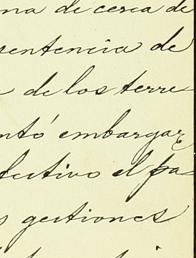 na de cerca de
sentencia de
de los terre
ntó embargar
fectivo el pa
gestiones